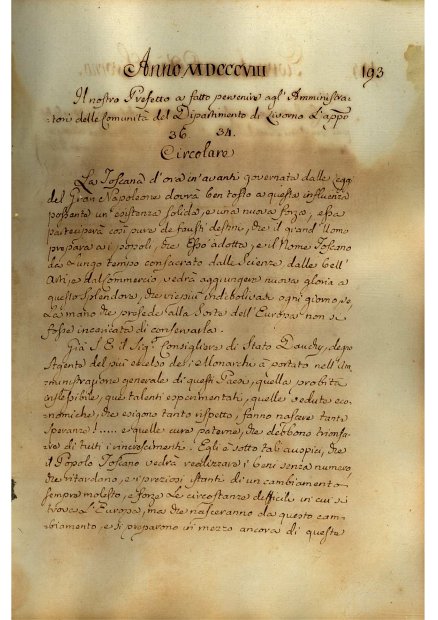 Anno MDCCCVIII 193
Il nostro Prefetto a fatto pervenire agl' Amministra-
tori delle Comunità del Dipartimento di Livorno l'app.o
36. 34.
Circolare
La Toscana d'ora in' avanti governata dalle
del Gran Napoleone dovrà ben tosto a questa influenza
possente un' esistenza solida, e una nuova forza, essa
parteciperà così pure de fausti destini, che il grand' Uomo
prepara a i popoli, che Esso adotta, e il Nome Toscano
da Lungo tempo consacrato dalle Scienze, dalle bell'
Arti, e dal Commercio vedrà aggiungere nuova gloria a
questo Splendore, che vie più indebolivasi ogni giorno, se
La mano che presede alla Sorte dell' Europa non si
fosse incaricata di conservarla.
Già S. E. il Sig.r Consigliere di Stato Dauchy, degno
Agente del più eccelso de i Monarchi à portato nell' Am-
ministrazione generale di questi Paesi, quella probità
inflessibile, que talenti esperimentati, quelle vedute eco-
nomiche, che esigono tanto rispetto, fanno nascere tante
speranze!..... e quelle cure paterne, che debbono trionfa-
re di tutti i rincrescimenti. Egli è sotto tali auspici, che
il Popolo Toscano vedrà realizzare i beni senza numero
che ritardano, e i preziosi istanti di un cambiamento
sempre molesto, e forse le circostanze difficili in cui si
trova l'Europa, ma che nasceranno da questo cam-
biamento, e si preparono in mezzo ancora di queste